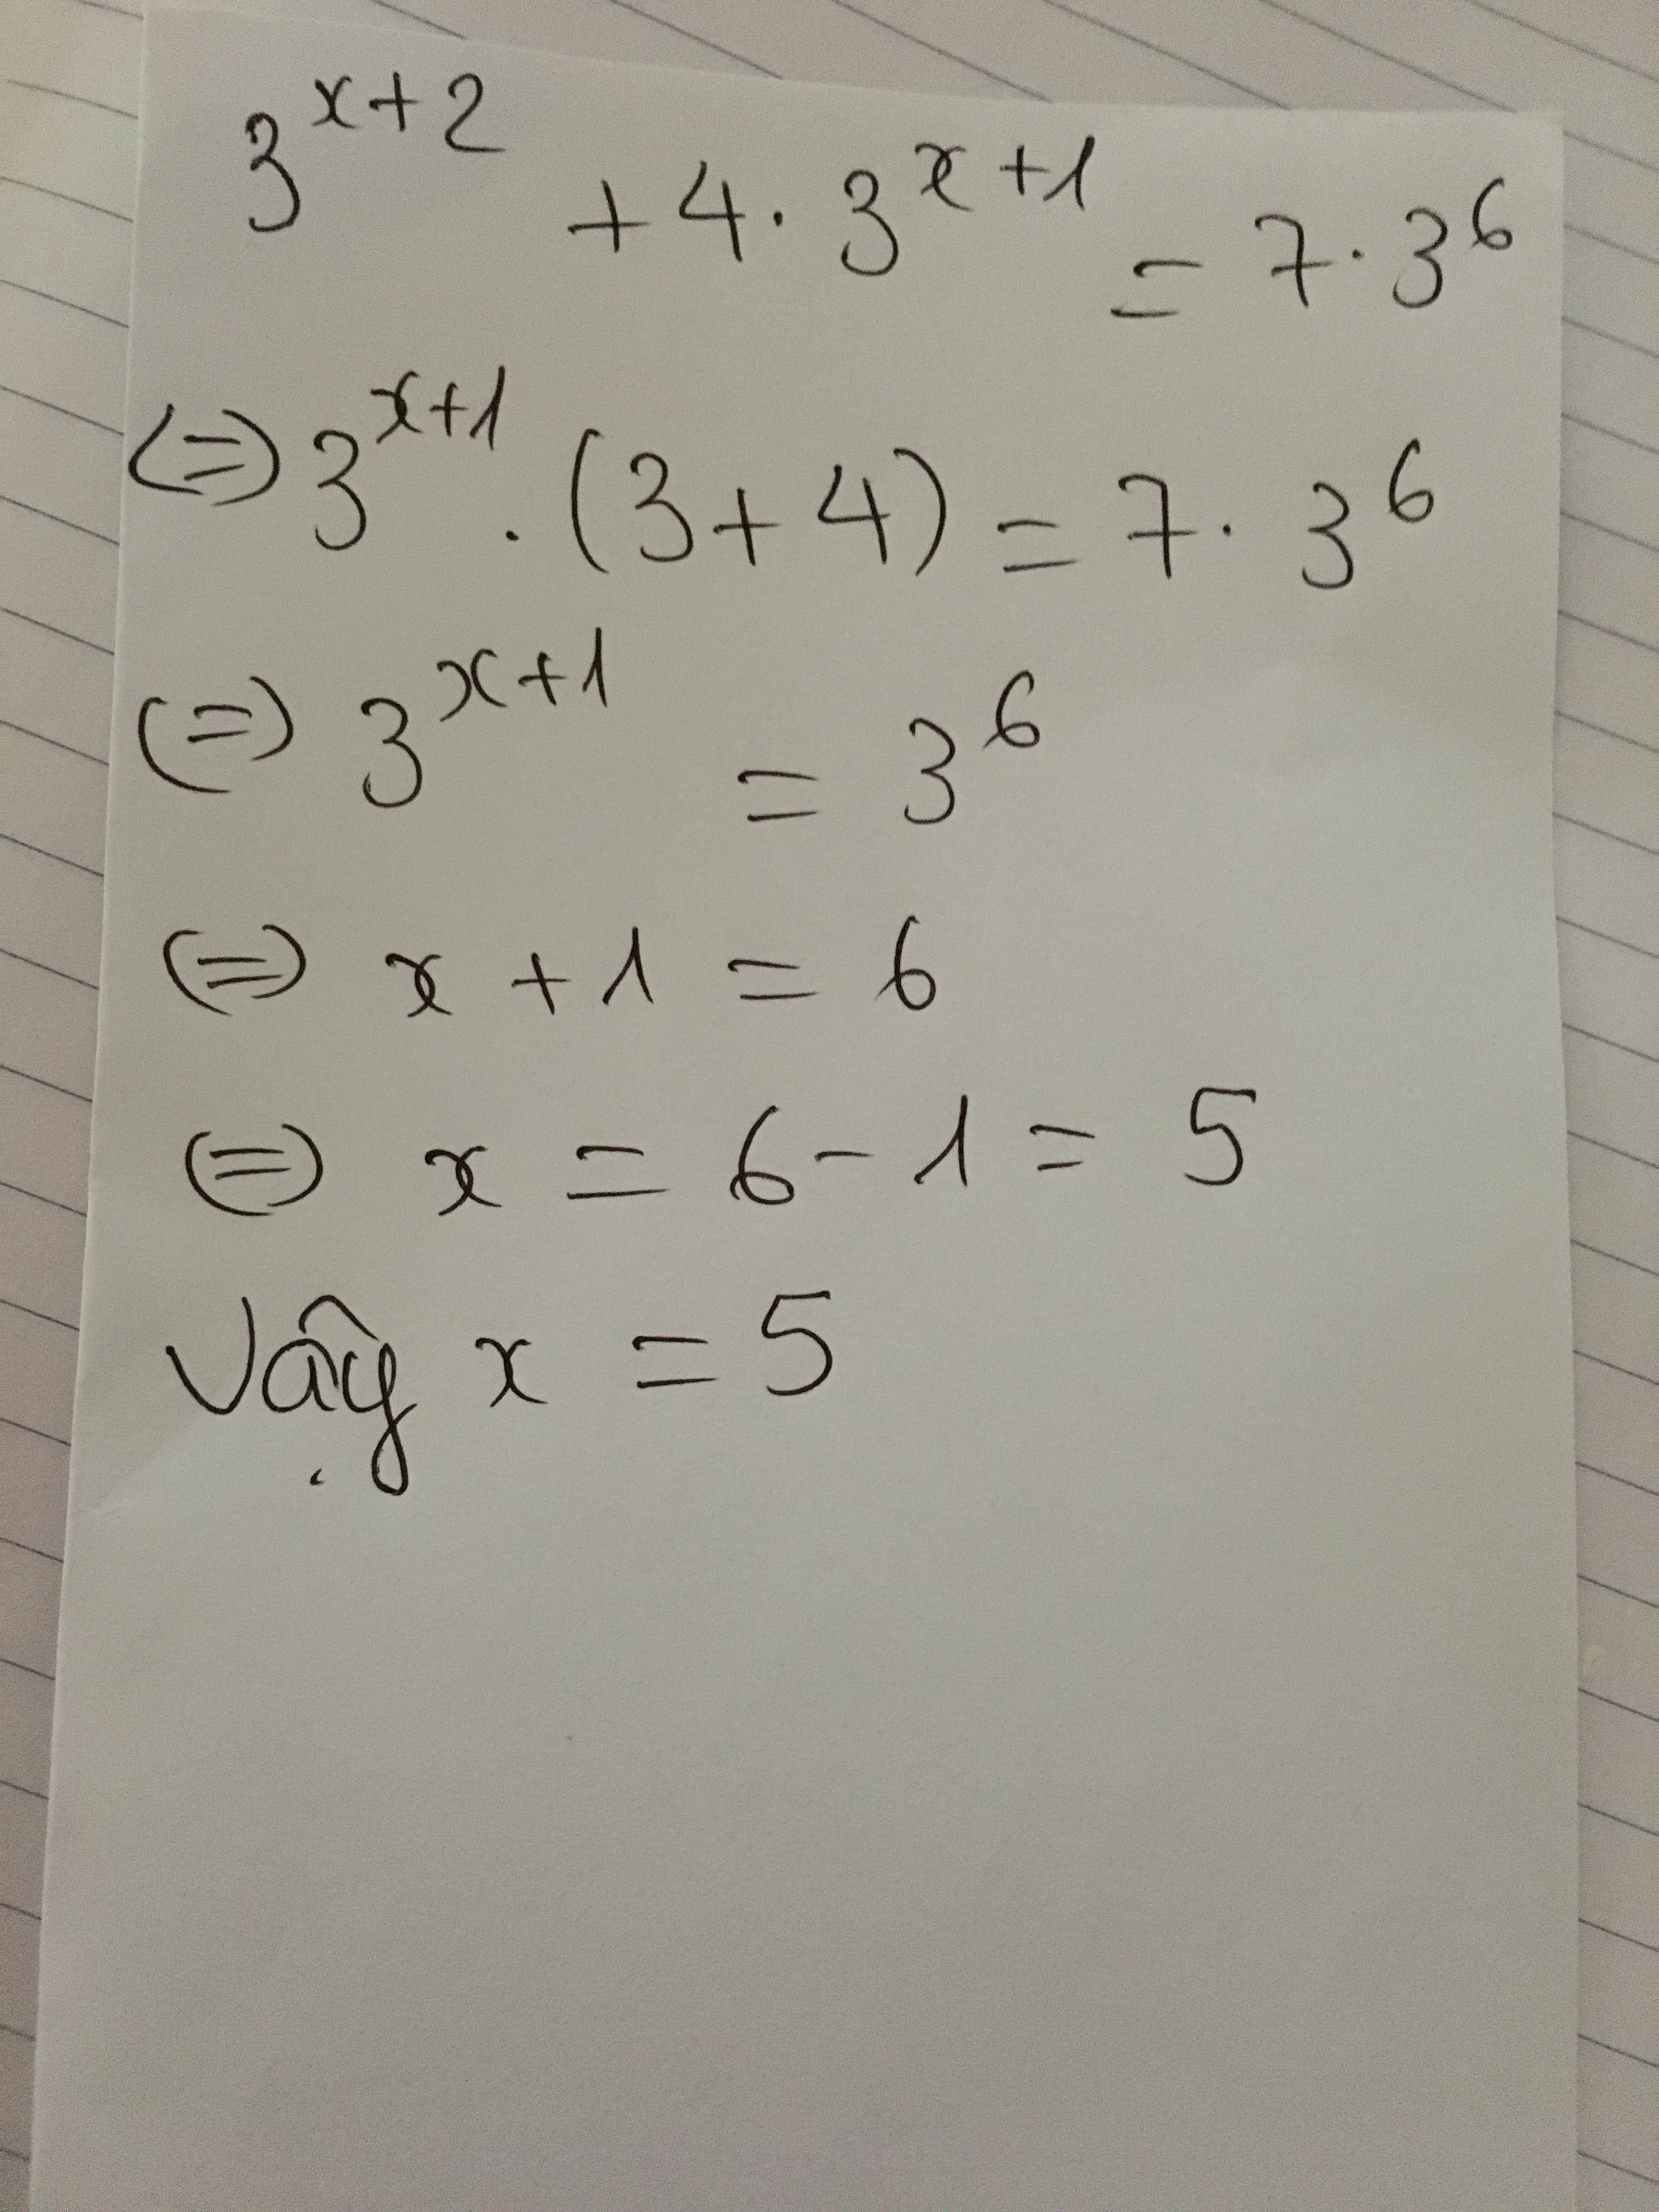 3^{x+2} + 4 \cdot 3^{x+1} = 7 \cdot 3^6
(=) 3^{x+1} \cdot (3+4) = 7 \cdot 3^6
(=) 3^{x+1} = 3^6
(=) x + 1 = 6
(=) x = 6 - 1 = 5
Vậy x = 5